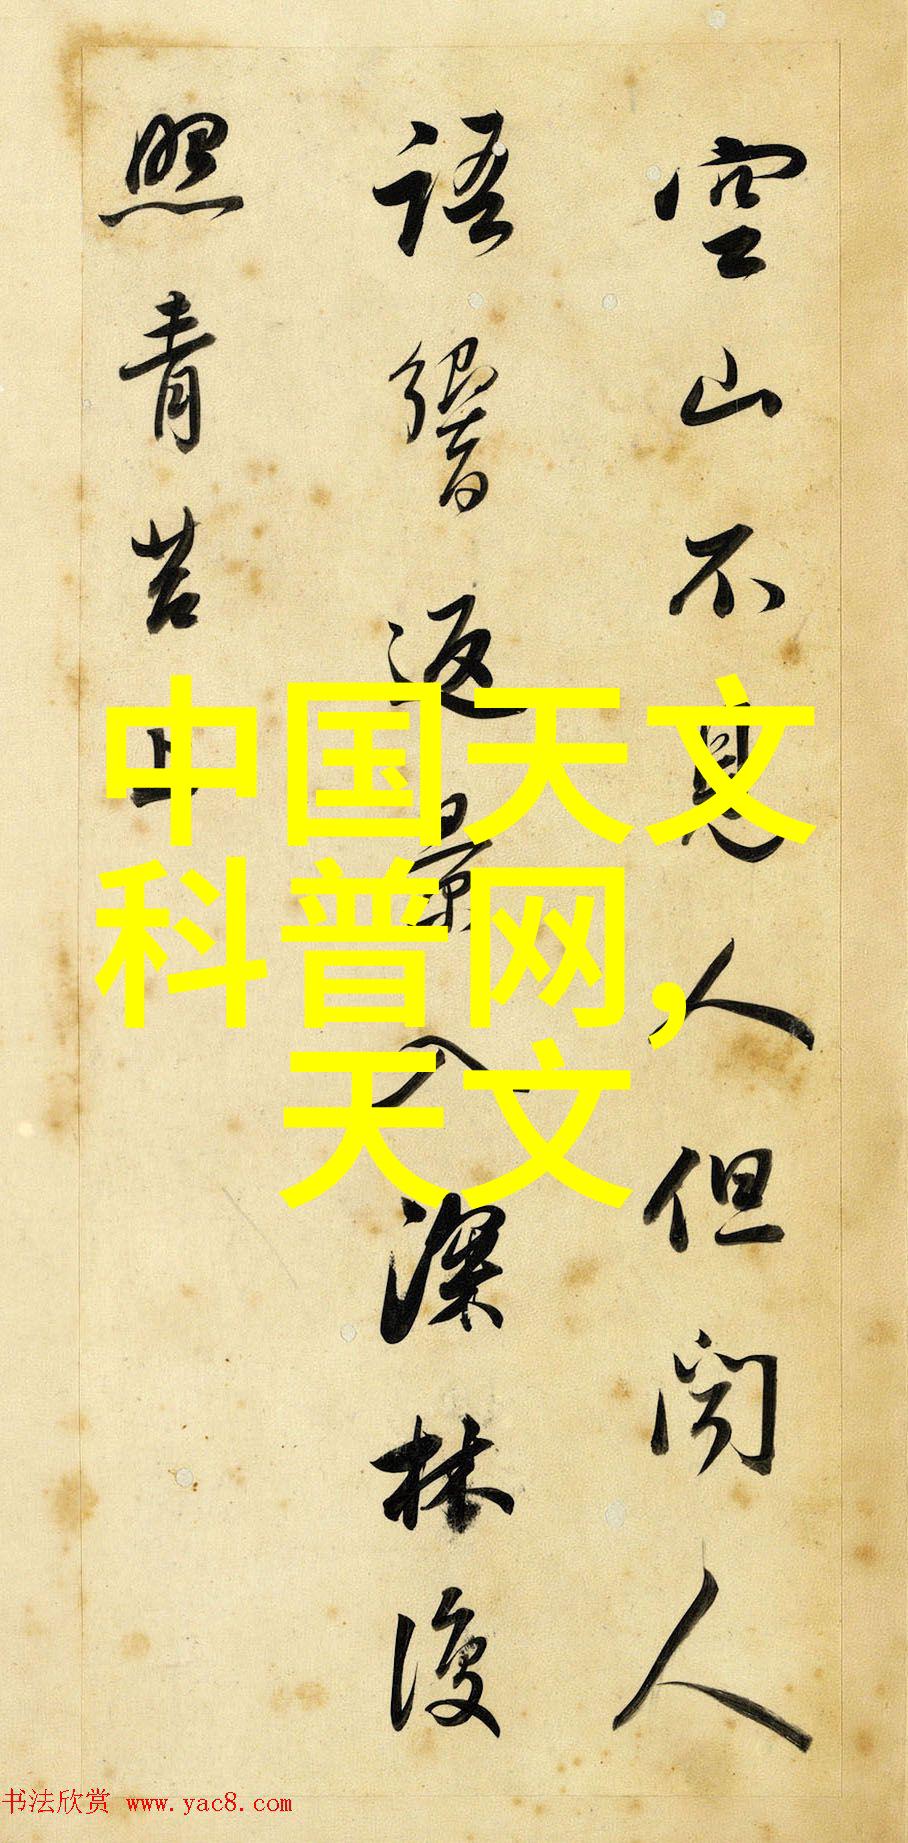 空山不見人但聞人
語響返景入深林復
照青苔上
中国天文
科普网,
天文
书法欣赏 www.yac8.com